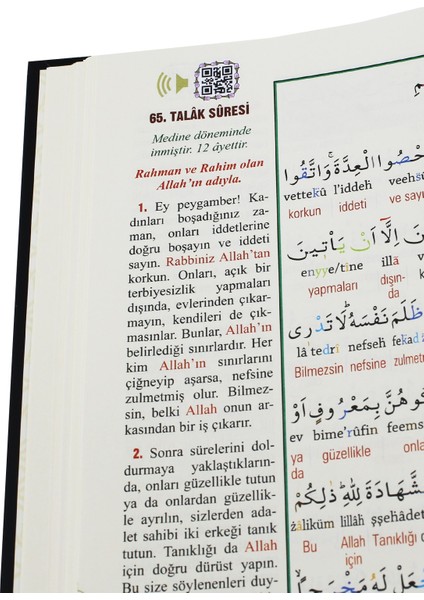 65. TALÂK SÛRESİ
Medine döneminde
inmiştir. 12 âyettir.
Rahman ve Rahim olan
Allah'ın adıyla.
1. Ey peygamber! Ka-
dınları boşadığınız za-
man, onları iddetlerine
doğru boşayın ve iddeti
sayın. Rabbiniz Allah'tan
korkun. Onları, açık bir
terbiyesizlik yapmaları
dışında, evlerinden çıkar-
mayın, kendileri de çık-
masınlar. Bunlar, Allah'ın
belirlediği sınırlardır. Her
kim Allah'ın sınırlarını
çiğneyip aşarsa, nefsine
zulmetmiş olur. Bilmez-
sin, belki Allah onun ar-
kasından bir iş çıkarır.
2. Sonra sürelerini dol-
durmaya yaklaştıkların-
da, onları güzellikle tutun
ya da onlardan güzellik-
le ayrılın, sizlerden ada-
let sahibi iki erkeği tanık
tutun. Tanıklığı da Allah
için doğru dürüst yapın.
Bu size söylenenleri duy-
حْصُوا الْعِدَّةَ وَاتَّقُوا
vettekû l'iddeh veehs
korkun iddeti ve sayı
نَ اِلَّٓا اَنْ يَأْتٖينَ
enyye/tîne illâ
yapmaları dışın-
da
ظَلَمَ نَفْسَهُ لَا تَدْرٖى
lâ tedrî nefseh fekad
Bilmezsin nefsine zulmetm
فُوهُنَّ بِمَعْرُوفٍ اَوْ
ev bime'rûfin feems
ya güzellikle onla
da
شَّهَادَةَ لِلّٰهِ ذٰلِكُمْ
żâliküm lillâh şşehâdet
Bu Allah Tanıklığı d
için
جْعَلْ لَهُ مَخْرَجًا